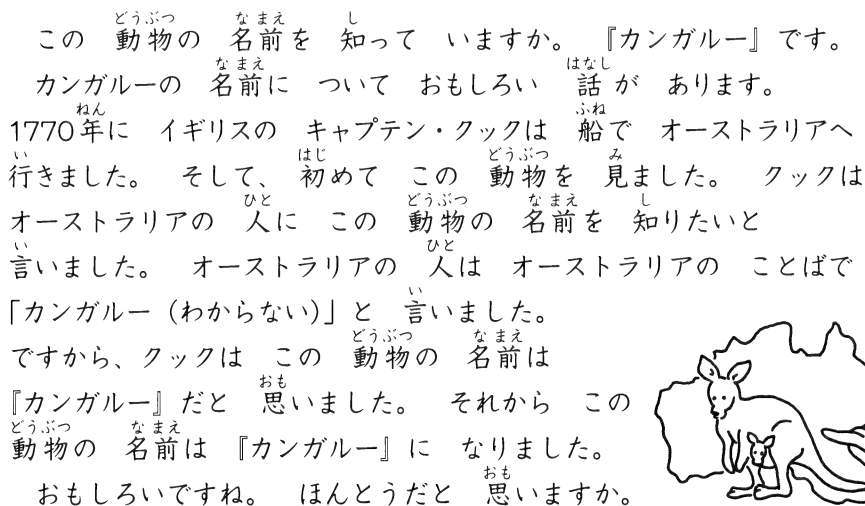 この 動物の 名前を 知って いますか。 『カンガルー』です。
カンガルーの 名前に ついて おもしろい 話が あります。
1770年に イギリスの キャプテン・クックは 船で オーストラリアへ
行きました。 そして、 初めて この 動物を 見ました。 クックは
オーストラリアの 人に この 動物の 名前を 知りたいと
言いました。 オーストラリアの 人は オーストラリアの ことばで
「カンガルー（わからない）」と 言いました。
ですから、クックは この 動物の 名前は
『カンガルー』だと 思いました。 それから この
動物の 名前は 『カンガルー』に なりました。
おもしろいですね。 ほんとうだと 思いますか。